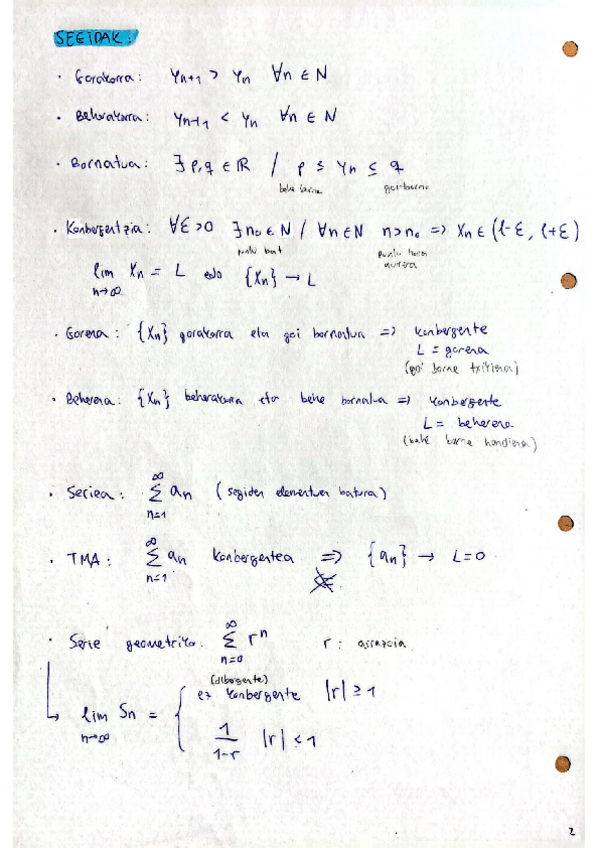 SEGIDAK:
· Gorakorra: Yn+1 > Yn ∀n ∈ N
· Beherakorra: Yn+1 < Yn ∀n ∈ N
· Bornatua: ∃ p,q ∈ ℝ / p ≤ Yn ≤ q
behe borne goi-borne
· Konbergentzia: ∀ε>0 ∃n₀ ∈ N / ∀n∈N n>n₀ => Xn ∈ (l-ε, l+ε)
puntu bat puntu hori aurrera
lim Xn = L edo {Xn} → L
n→∞
· Gorena: {Xn} gorakorra eta goi bornatua => konbergente
L = gorena
(goi borne txikiena)
· Beherena: {Xn} beherakorra eta behe bornatua => konbergente
L = beherena
(behe borne handiena)
· Seriea: ∞ Σ n=1 an (segiden elementuen batura)
· TMA: ∞ Σ n=1 an konbergentea => {an} → L=0
· Serie geometriko: ∞ Σ n=0 rⁿ r: arrazoia
(dibergente)
lim Sn = { ez konbergente |r| ≥ 1
n→∞
1/1-r |r| < 1
2